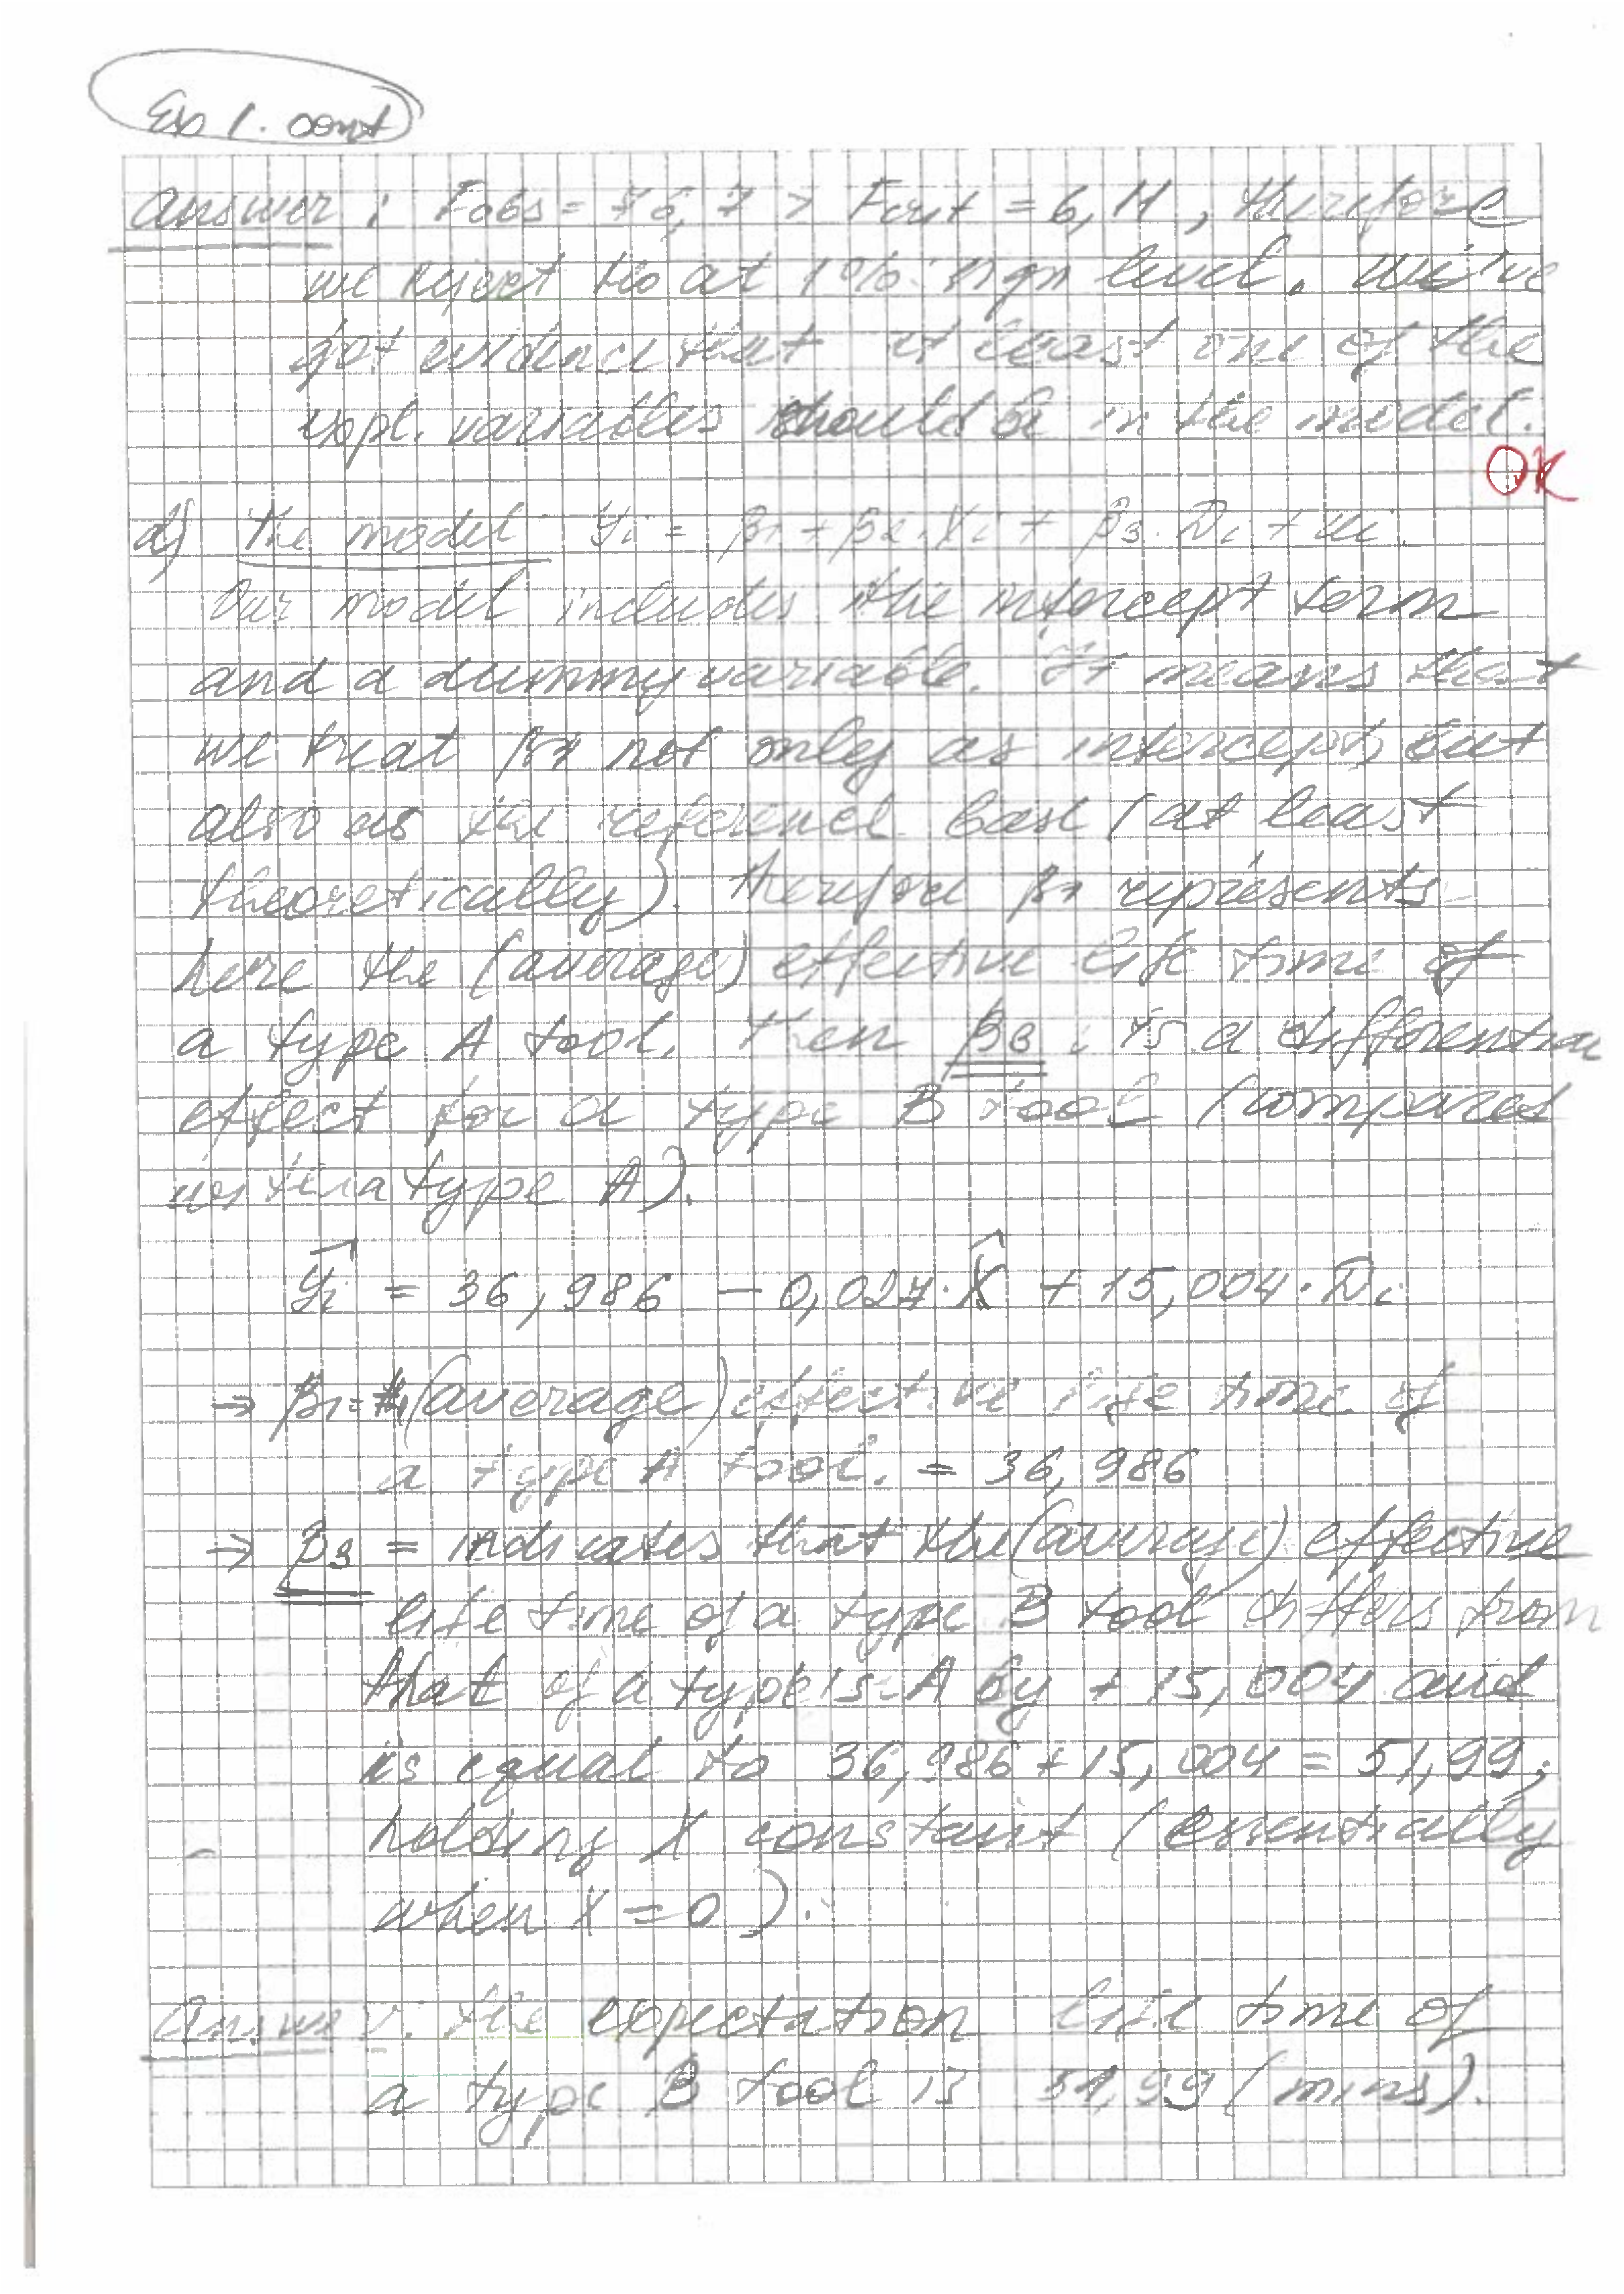 Ex 1. cont
Answer: Fobs = 76,7 > Fcrit = 6,11, therefore
we reject Ho at 1% sign level. We've
got evidence that at least one of the
expl. variables should be in the model.
OK
d) The model: Yi = β1 + β2·Xi + β3·Di + ui
Our model includes the intercept term
and a dummy variable. It means that
we treat β1 not only as intercept, but
also as the reference base (at least
theoretically). Therefore β1 represents
here the (average) effective life time of
a type A tool. Then β3: is a differential
effect for a type B tool (compared
a type A).
Ŷi = 36,986 - 0,027·X̂ + 15,004·Di
→ β1 = (average) effective life time of
a type A tool. = 36,986
→ β3 = indicates that the (average) effective
life time of a type B tool differs from
that of a type is A by + 15,004 and
is equal to 36,986 + 15,004 = 51,99;
holding X constant (essentially
when X = 0).
Answer: the expectation life time of
a type B tool is 51,99 (mins).